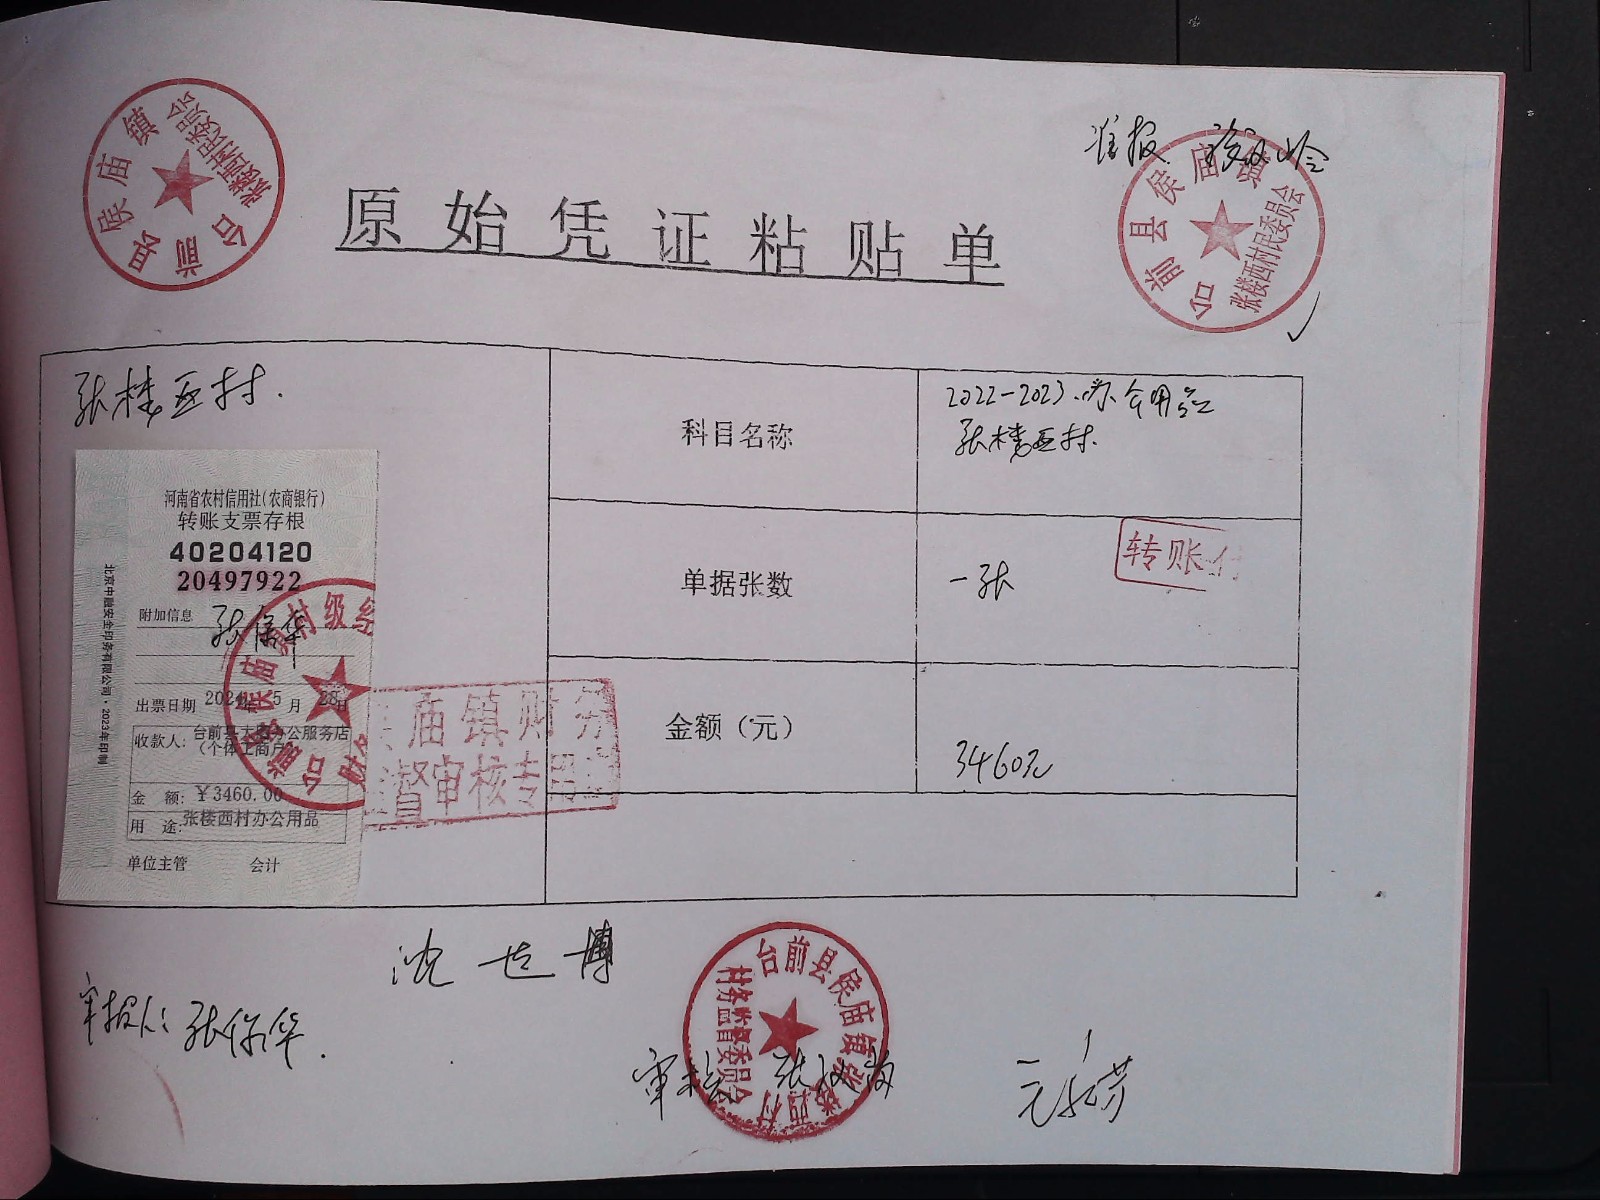 台前县侯庙镇
张楼西村民委员会
准报
台前县侯庙镇
张楼西村民委员会
原始凭证粘贴单
张楼西村.
科目名称
2022-2023.办公用品
张楼西村.
单据张数
一张
转账付
金额（元）
3460元
河南省农村信用社(农商银行)
转账支票存根
40204120
20497922
附加信息
张保华
出票日期 2024年 5 月 28日
收款人: 台前县 办公服务店
（个体工商户）
金 额: ￥3460.00
用 途: 张楼西村办公用品
单位主管 会计
北京中融安全印务有限公司·2023年印制
侯庙镇财务
监督审核专用章
沈世博
审报人: 张保华.
台前县侯庙镇张楼西村
村务监督委员会
审核